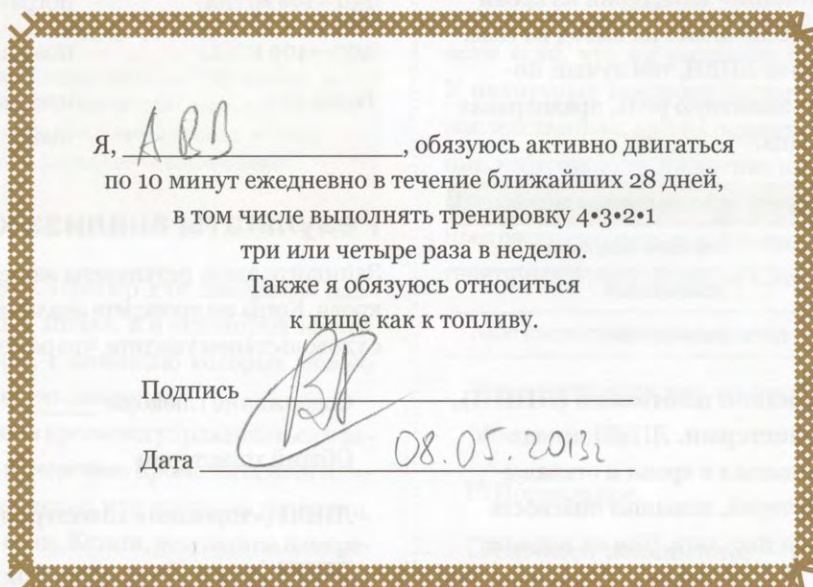 Я, АВВ, обязуюсь активно двигаться
по 10 минут ежедневно в течение ближайших 28 дней,
в том числе выполнять тренировку 4•3•2•1
три или четыре раза в неделю.
Также я обязуюсь относиться
к пище как к топливу.
Подпись
Дата 08.05.2013г